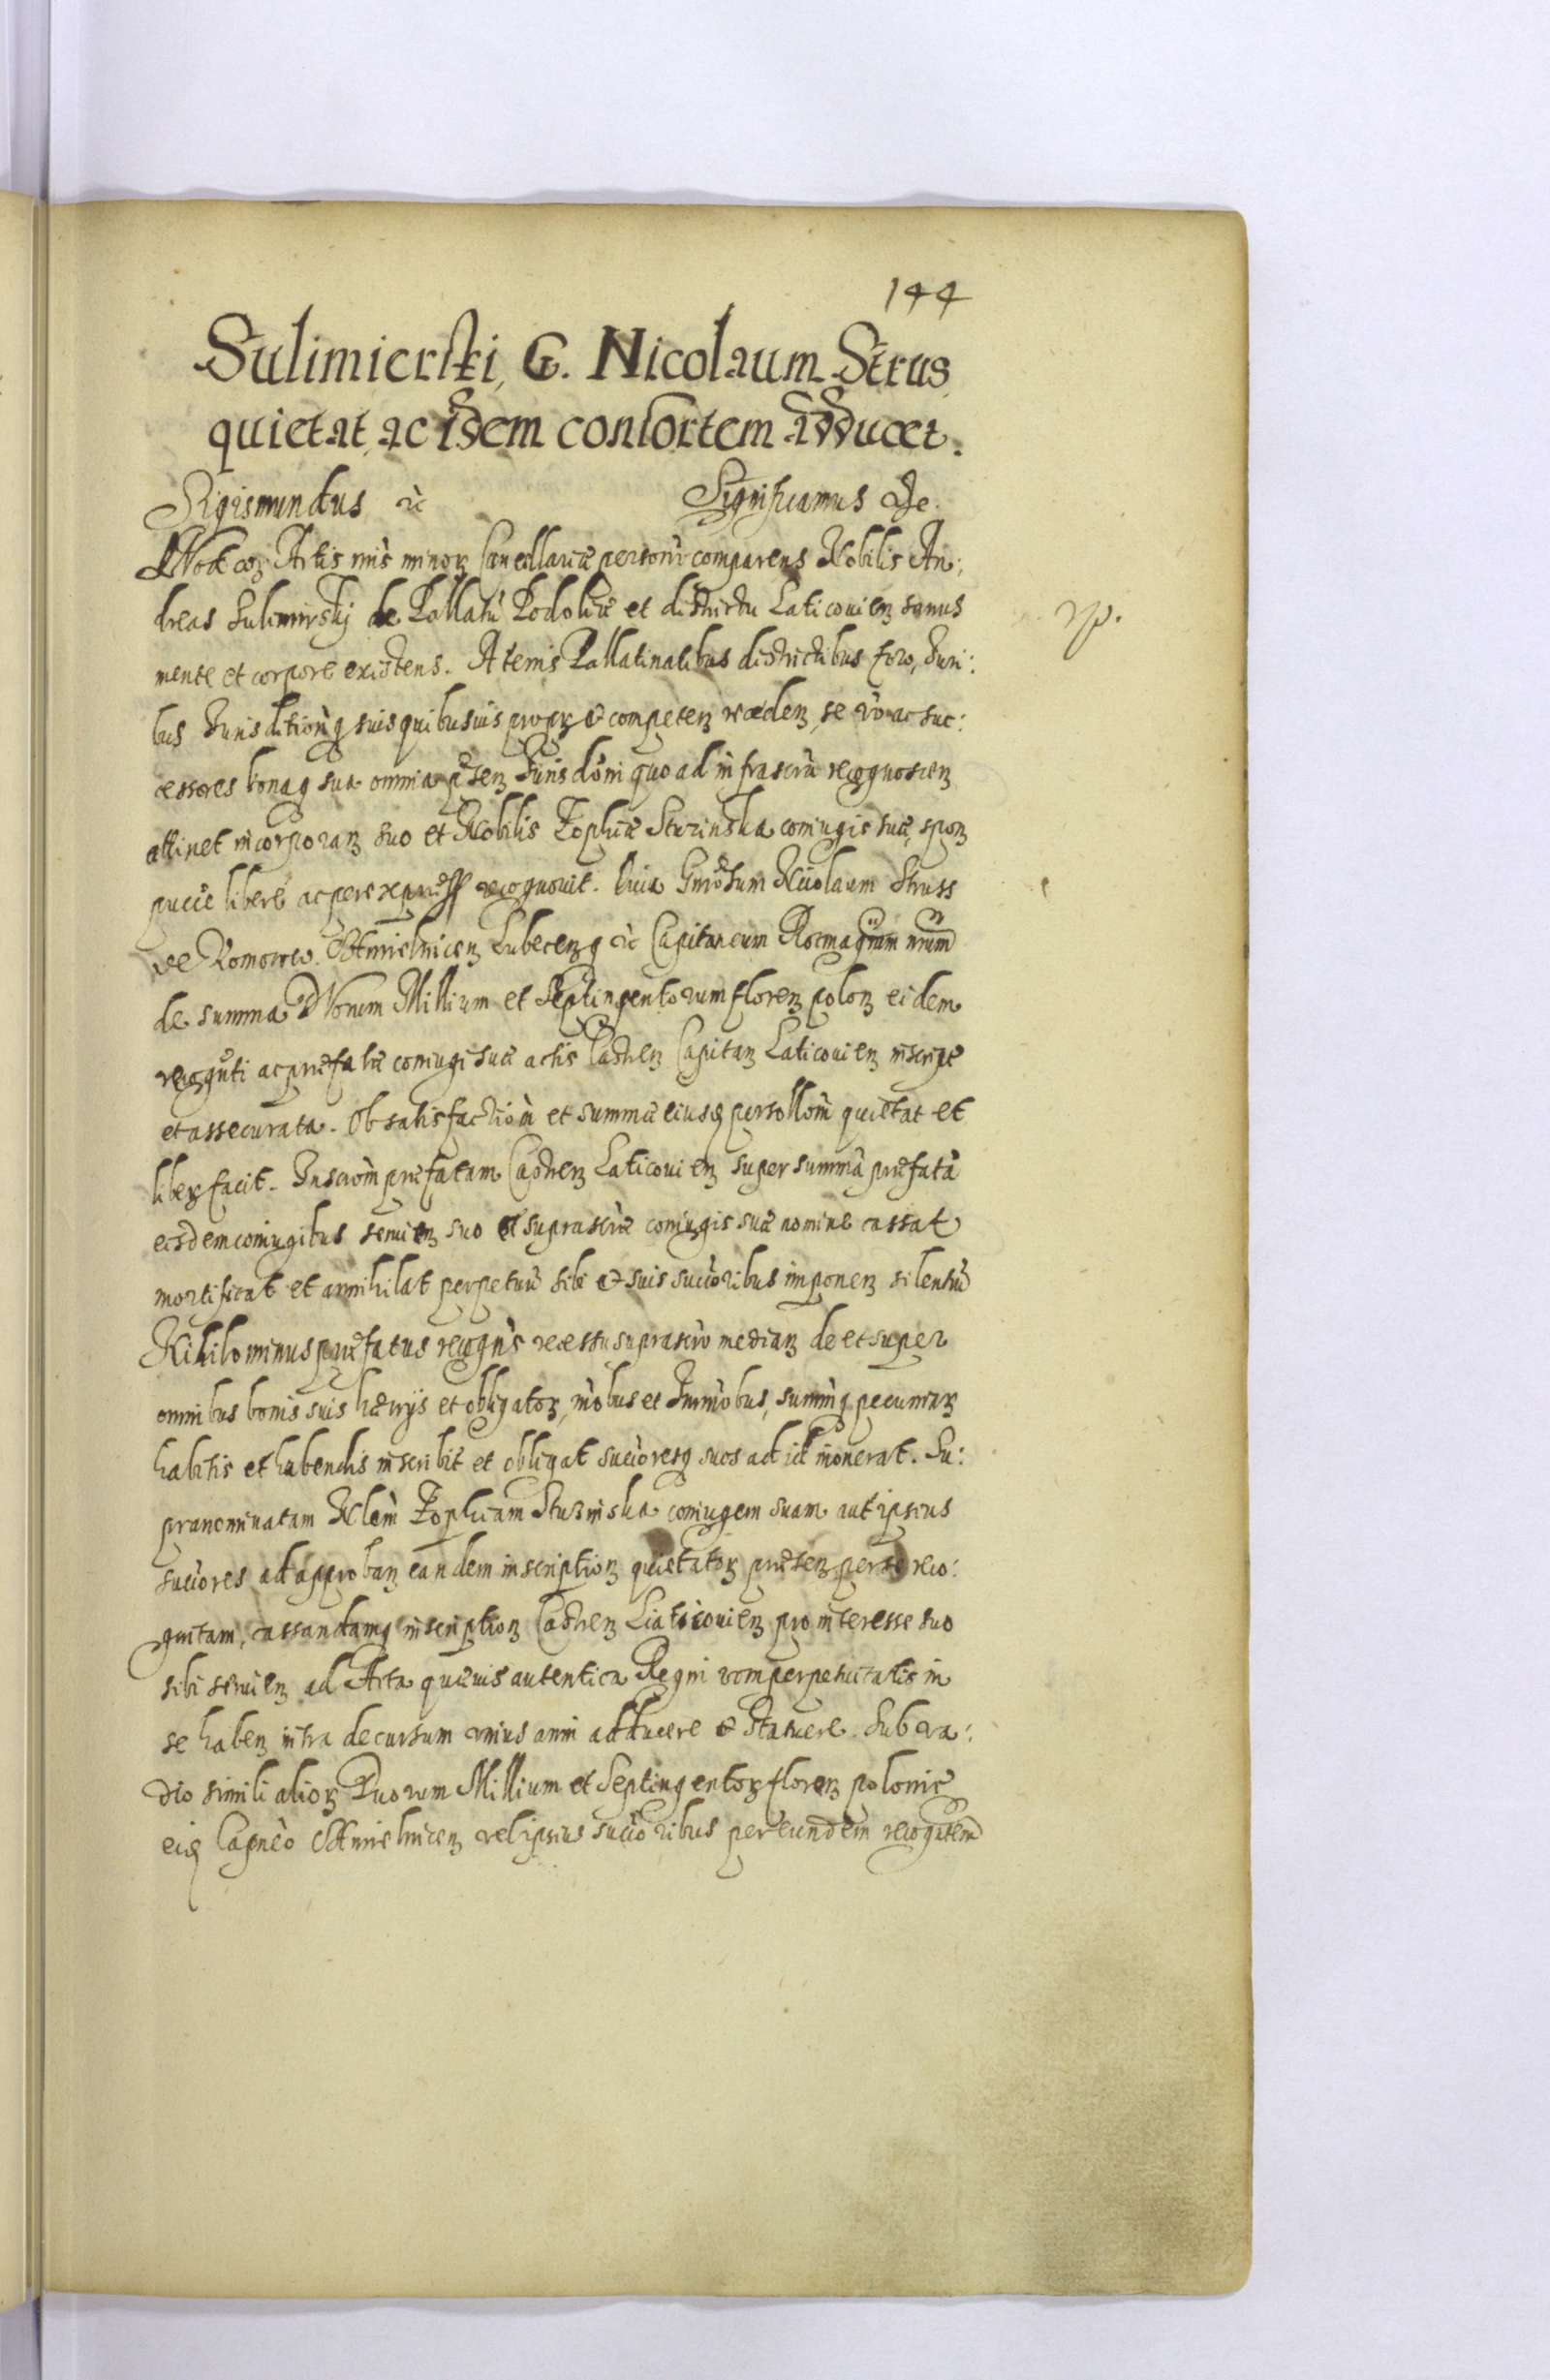 144
Sulimierski, G. Nicolaum Strus
quietat, ac idem consortem adducet.
Sigismundus etc Significamus etc.
Quod coram Actis mis minor Cancellariæ personr comparens Nobilis An:
dreas Sulimirskj de Pallatu Podoliæ et districtu Laticouien sanus
rp.
mente et corpore existens. A terris Pallatinatibus districtibus foro, Juri:
bus Jurisditionq suis quibusuis propr et competen receden, se vo ac suc:
cessores bonaq sua omnia pnsen Jurisdoni quo ad infrascru recognoscen
attinet incorporan suo et Nobilis Zophiæ Sturinska coniugis suæ, spon
puræ libere ac per expresse recognouit. Quia Gnrosum Nicolaum Struss
de Komorow Chmielnicen Lubecenq etc Capitaneum Rotmagrum nrum
de summa Nouem Millium et Septingentorum floren polon eidem
recognti ac præfatæ coniugi suæ actis Castren Capitan Laticouien inscripte
et assecurata. Ob satisfactiom et summæ eiusd persollom quietat et
liber facit. Inscrom præfatam Castren Laticouien super summa præfata
eisdem coniugibus seruien suo et suprascræ coniugis suæ nomine cassat
mortificat et annihilat perpetuu sibi et suis succoribus imponen silentiu
Nihilominus præfatus recogns recessu suprascro median de et super
omnibus bonis suis hæredijs et obligator, mobus et Immobus, summq pecuniar
habitis et habendis inscribit et obligat succoresq suos ad id inonerat. Su:
pranominatam Nlem Zophiam Sturinska coniugem suam aut ipsius
succores ad approban eandem inscription quietator præsen per se reco:
gnitam, cassandamq inscription Castren Liaticouien pro interesse suo
sibi seruien ad Acta quæuis autentica Regni rom perpetuitatis in
se haben intra decursum vnius anni adducere et statuere. Sub va:
dio simili alior Duorum Millium et Septingentor floren polonic
eid Capneo Chmielnicen vel ipsius succoribus per eundem recogntem